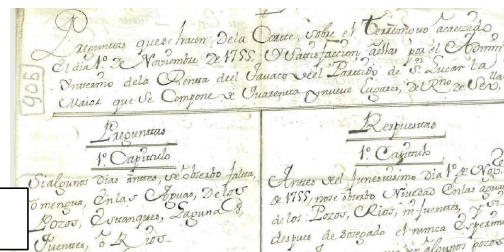 Preguntas que se hacen De la Corte, sobre el Terremoto acaecido
El dia 1º de Noviembre de 1755, Y Satisfaccion a ellas por el Admin.
de la Renta del Tavaco del Partido de S. Lucar la
Maior que Se Compone de Quarenta y nueve Lugares, del Rno de Sev.
Preguntas
1º Capitulo
Si algunos Dias antes, se observó falta,
o mengua, en las Aguas, De los
Pozos, Estanques, Lagunas,
Fuentes, o Rios
Respuestas
1º Capitulo
Antes del funestissimo Dia 1º de Nov.
de 1755, no se observó Novedad en las aguas
de los Pozos, Rios, ni fuentes, y
despues de sosegado el nunca
en algunos pozos